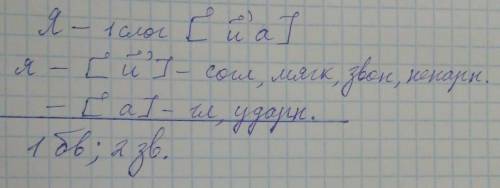 Я – 1 слог [й' а]
я – [й'] – согл, мягк, звон, непарн.
– [а] – гл, ударн.
1 бв; 2 зв.